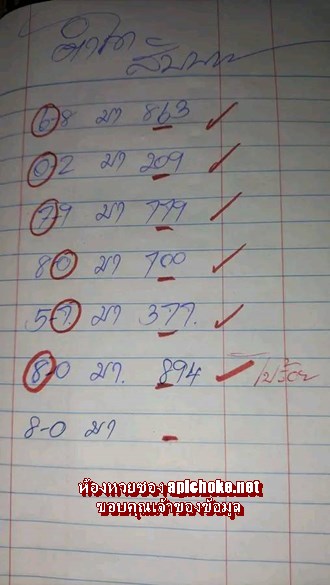 6-8 มา 863
0-2 มา 209
7-9 มา 779
8-0 มา 700
5-7. มา 377.
8-0 มา. 894
8-0 มา
ห้องหวยซอง apichoke.net
ขอบคุณเจ้าของข้อมูล